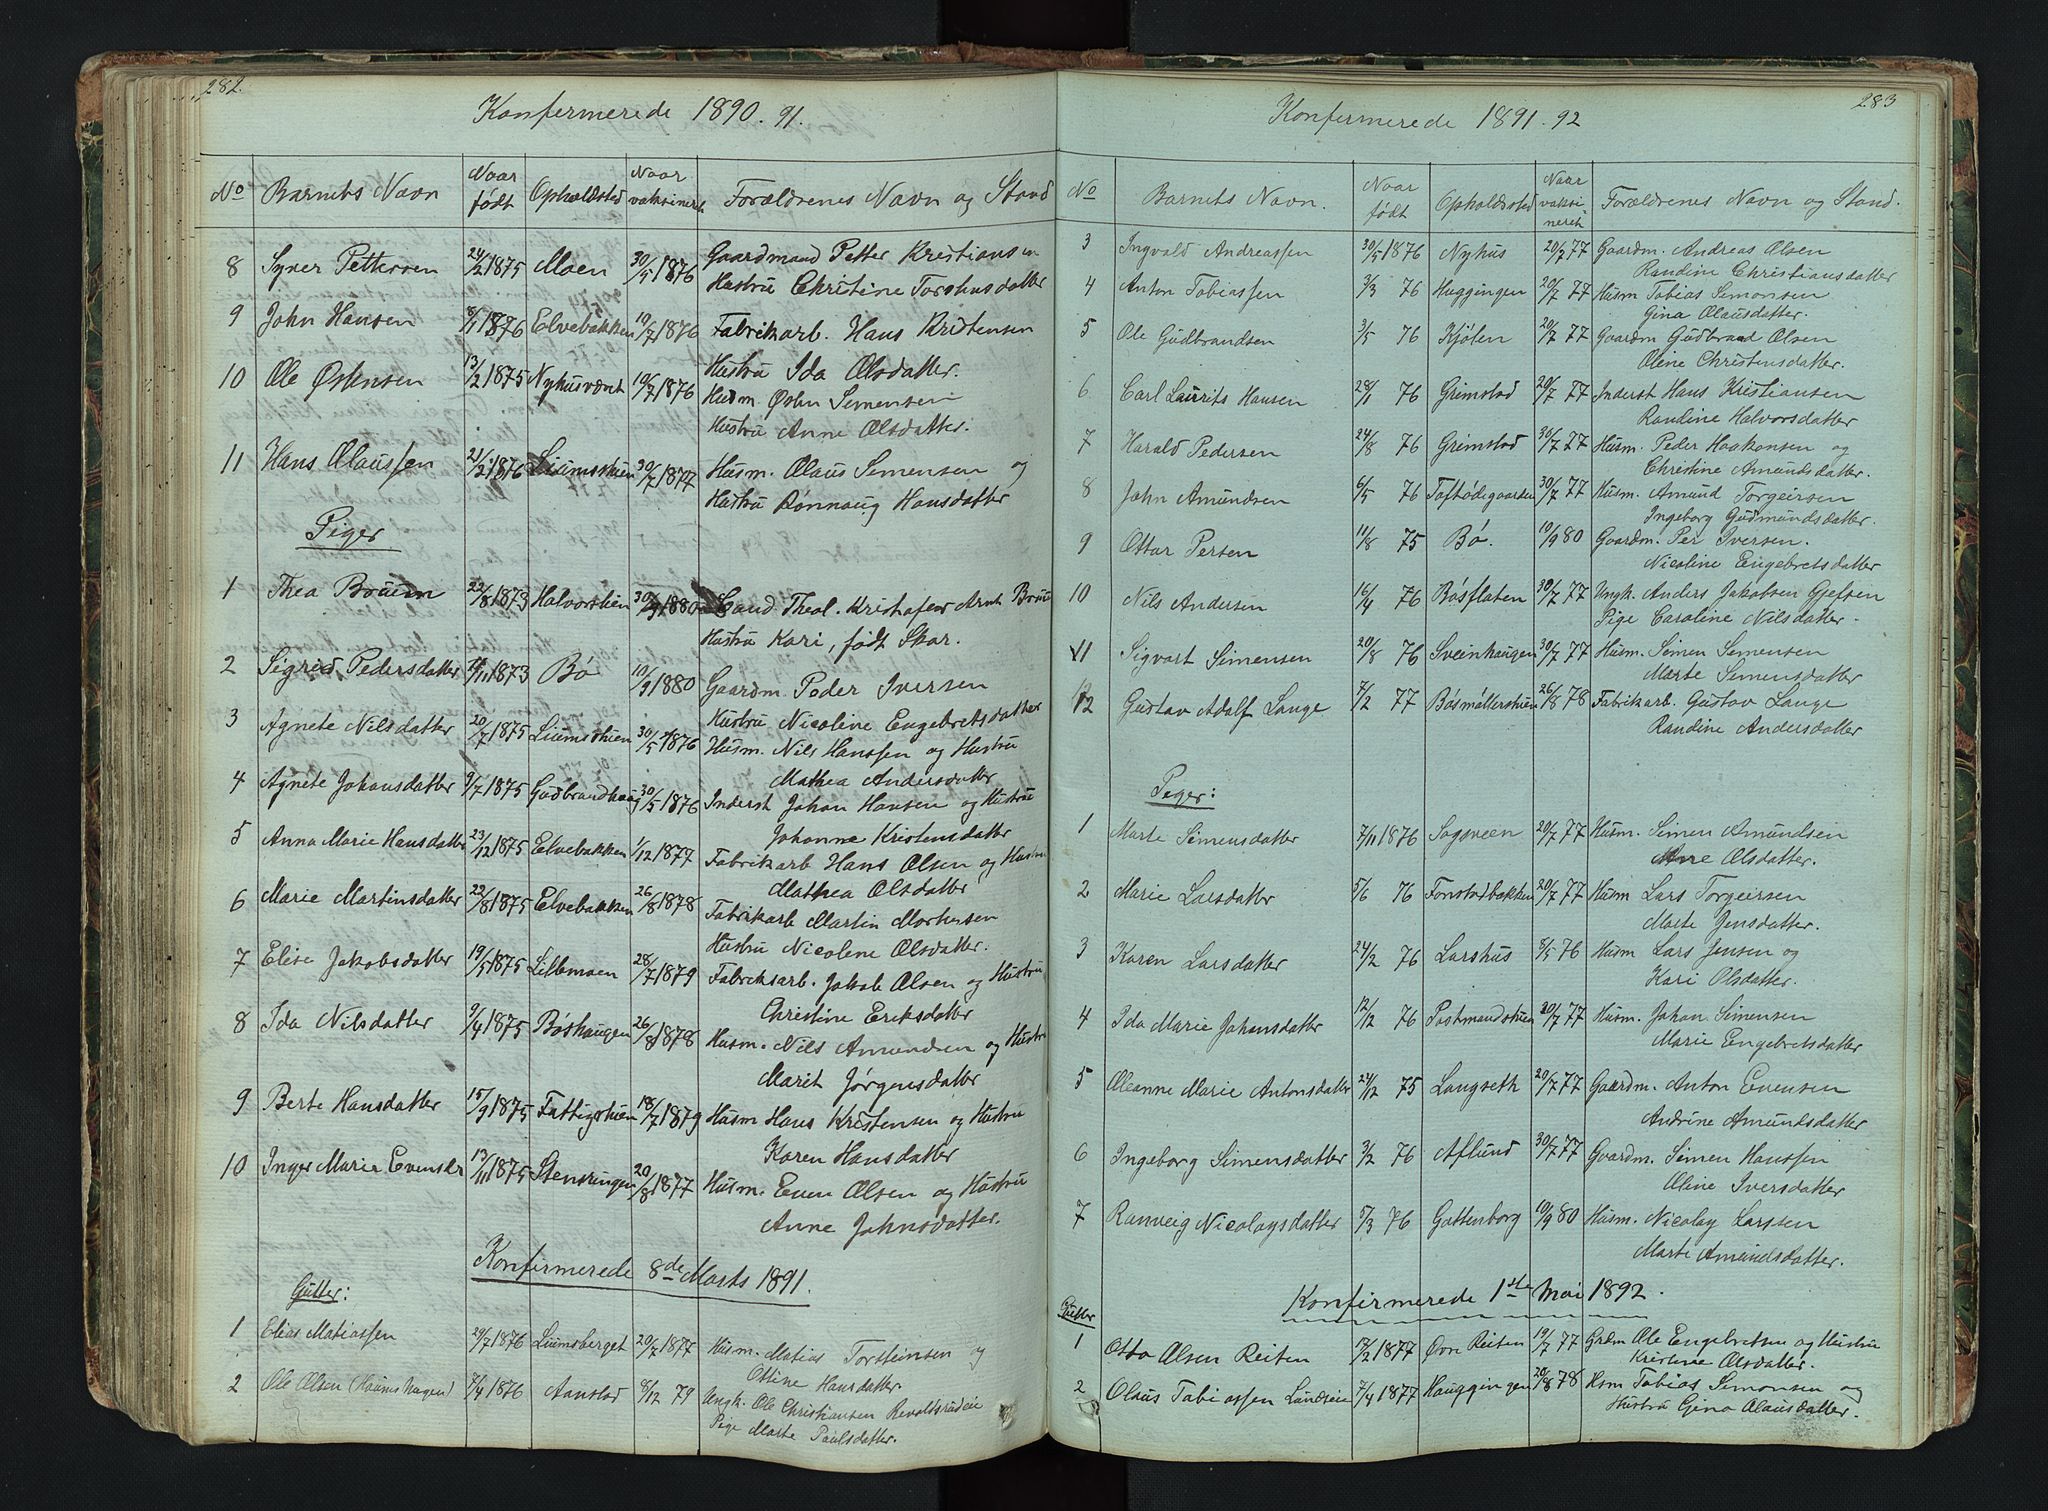 282.
Konfermerede 1890. 91.
No Barnets Navn Naar født Opholdsted Naar vaksineret Forældrenes Navn og Stand
8 Syver Pettersen 24/2 1875 Moen 30/5 1876 Gaardmand Petter Kristiansen
Hustru Christine Torshusdatter
9 John Hansen 8/1 1876 Elvebakken 19/7 1876 Fabrikarb. Hans Kristensen
Hustru Ida Olsdatter.
10 Ole Østensen 13/2 1875 Nyhusvænt 19/7 1876 Husm. Østen Semensen
Hustru Anne Olsdatter.
11 Hans Olaussen 21/2 1876 Liumsstuen 30/7 1877 Husm. Olaus Simensen og
Hustru Rønnaug Hansdatter
Piger
1 Thea Bruun 22/8 1873 Halvorstien 30/9 1880 Cand. Theol. Kristofer Arnt Bruun
Hustru Kari, født Skar.
2 Sigrid Pedersdatter 11/11 1873 Bø 10/9 1880 Gaardm. Peder Iversen
Hustru Nicoline Engebretsdatter
3 Agnete Nilsdatter 20/7 1875 Liumsstuen 30/5 1876 Husm. Nils Hanssen og Hustru
Mathea Andersdatter
4 Agnete Johansdatter 9/7 1875 Gudbrandhaug 30/5 1876 Inderst Johan Hansen og Hustru
Johanne Kristensdatter
5 Anna Marie Hansdatter 23/12 1875 Elvebakken 1/12 1877 Fabrikarb Hans Olsen og Hustru
Mathea Olsdatter
6 Marie Martinsdatter 22/8 1875 Elvebakken 26/8 1878 Fabrikarb Martin Mortensen
Hustru Nicolene Olsdatter.
7 Elise Jakobsdatter 19/5 1875 Lillemoen 28/7 1879 Fabriksarb. Jakob Olsen og Hustru
Christine Eriksdatter
8 Ida Nilsdatter 9/4 1875 Bøshaugen 26/8 1878 Husm. Nils Amundsen og Hustru
Marit Jørgensdatter
9 Berte Hansdatter 15/9 1875 Fattigstuen 18/7 1879 Husm Hans Kristensen og Hustru
Karen Hansdatter
10 Inger Marie Evensdr 13/11 1875 Stensringen 20/8 1877 Husm. Even Olsen og Hustru
Anne Johnsdatter.
Konfirmerede 8de Marts 1891.
Gutter:
1 Elias Matiassen 29/7 1876 Liumsberget 20/7 1877 Husm. Matias Torsteinsen og
Ottine Hansdatter.
2 Ole Olsen 7/4 1876 Aanstad 8/12 79 Ungk. Ole Christiansen
Pige Marte Paulsdatter.
283
Konfermerede 1891. 92
No Barnets Navn. Naar født Opholdsted Naar vaksineret Forældrenes Navn og Stand.
3 Ingvald Andreassen 30/5 1876 Nyhus 20/7 77 Gaardm. Andreas Olsen
Randine Christiansdatter
4 Anton Tobiassen 3/3 76 Huggingen 20/7 77 Husm Tobias Semonsen
Gina Olausdatter.
5 Ole Gudbrandsen 3/5 76 Kjølen 20/7 77 Gaardm Gudbrand Olsen
Oline Christensdatter.
6 Carl Laurits Hansen 28/1 76 Grimstad 20/7 77 Inderst Hans Kristiansen
Randine Halvorsdatter
7 Harald Pedersen 24/8 76 Grimstad 30/7 77 Husm. Peder Haakonsen og
Christine Amundsdatter
8 John Amundsen 6/5 76 Toftødegaarden 30/7 77 Husm. Amund Torgeirsen
Ingeborg Gudmundsdatter.
9 Ottar Persen 11/8 75 Bø. 10/9 80 Gaardm. Per Iversen.
Nicoline Engebretsdatter
10 Nils Andersen 16/4 76 Bøsflaten 30/7 77 Ungk. Anders Jakobsen Gjelsen
Pige Caroline Nilsdatter.
11 Sigvart Simensen 20/8 76 Sveinhaugen 30/7 77 Husm. Simen Simensen
Marte Semensdatter
12 Gustav Adolf Lange 7/2 77 Bøsmøllerstuen 26/8 78 Fabrikarb. Gustav Lange
Randine Andersdatter
Piger:
1 Marte Simensdatter 7/11 1876 Sagveen 20/7 77 Husm. Simen Amundsen
Anne Olsdatter.
2 Marie Larsdatter 5/6 76 Fonstadbakken 20/7 77 Husm Lars Torgeirsen
Marte Jensdatter.
3 Karen Larsdatter 24/2 76 Larshus 8/5 76 Husm Lars Jensen og
Kari Olsdatter.
4 Ida Marie Johansdatter 12/12 76 Postmandstuen 20/7 77 Husm. Johan Simensen
Marie Engebretsdatter
5 Oleanne Marie Antonsdatter 24/12 75 Langseth 20/7 77 Gaardm. Anton Evensen
Andrine Amundsdatter
6 Ingeborg Simensdatter 3/2 76 Aflund 30/7 77 Gaardm. Simen Hanssen
Oline Iversdatter
7 Ranveig Nicolaysdatter 5/3 76 Gottenborg 10/9 80 Husm. Nicolay Larssen
Marte Amundsdatter.
Konfirmerede 1ste Mai 1892.
Gutter
1 Otto Olsen Reiten 17/2 1877 Øvre Reiten 19/7 77 Grdm Ole Engebretsen og Hustru
Kristine Olsdatter.
2 Olaus Tobiassen 7/4 1877 Hauggingen 20/8 78 Hsm Tobias Simonsen og
Hustru Gina Olausdatter.